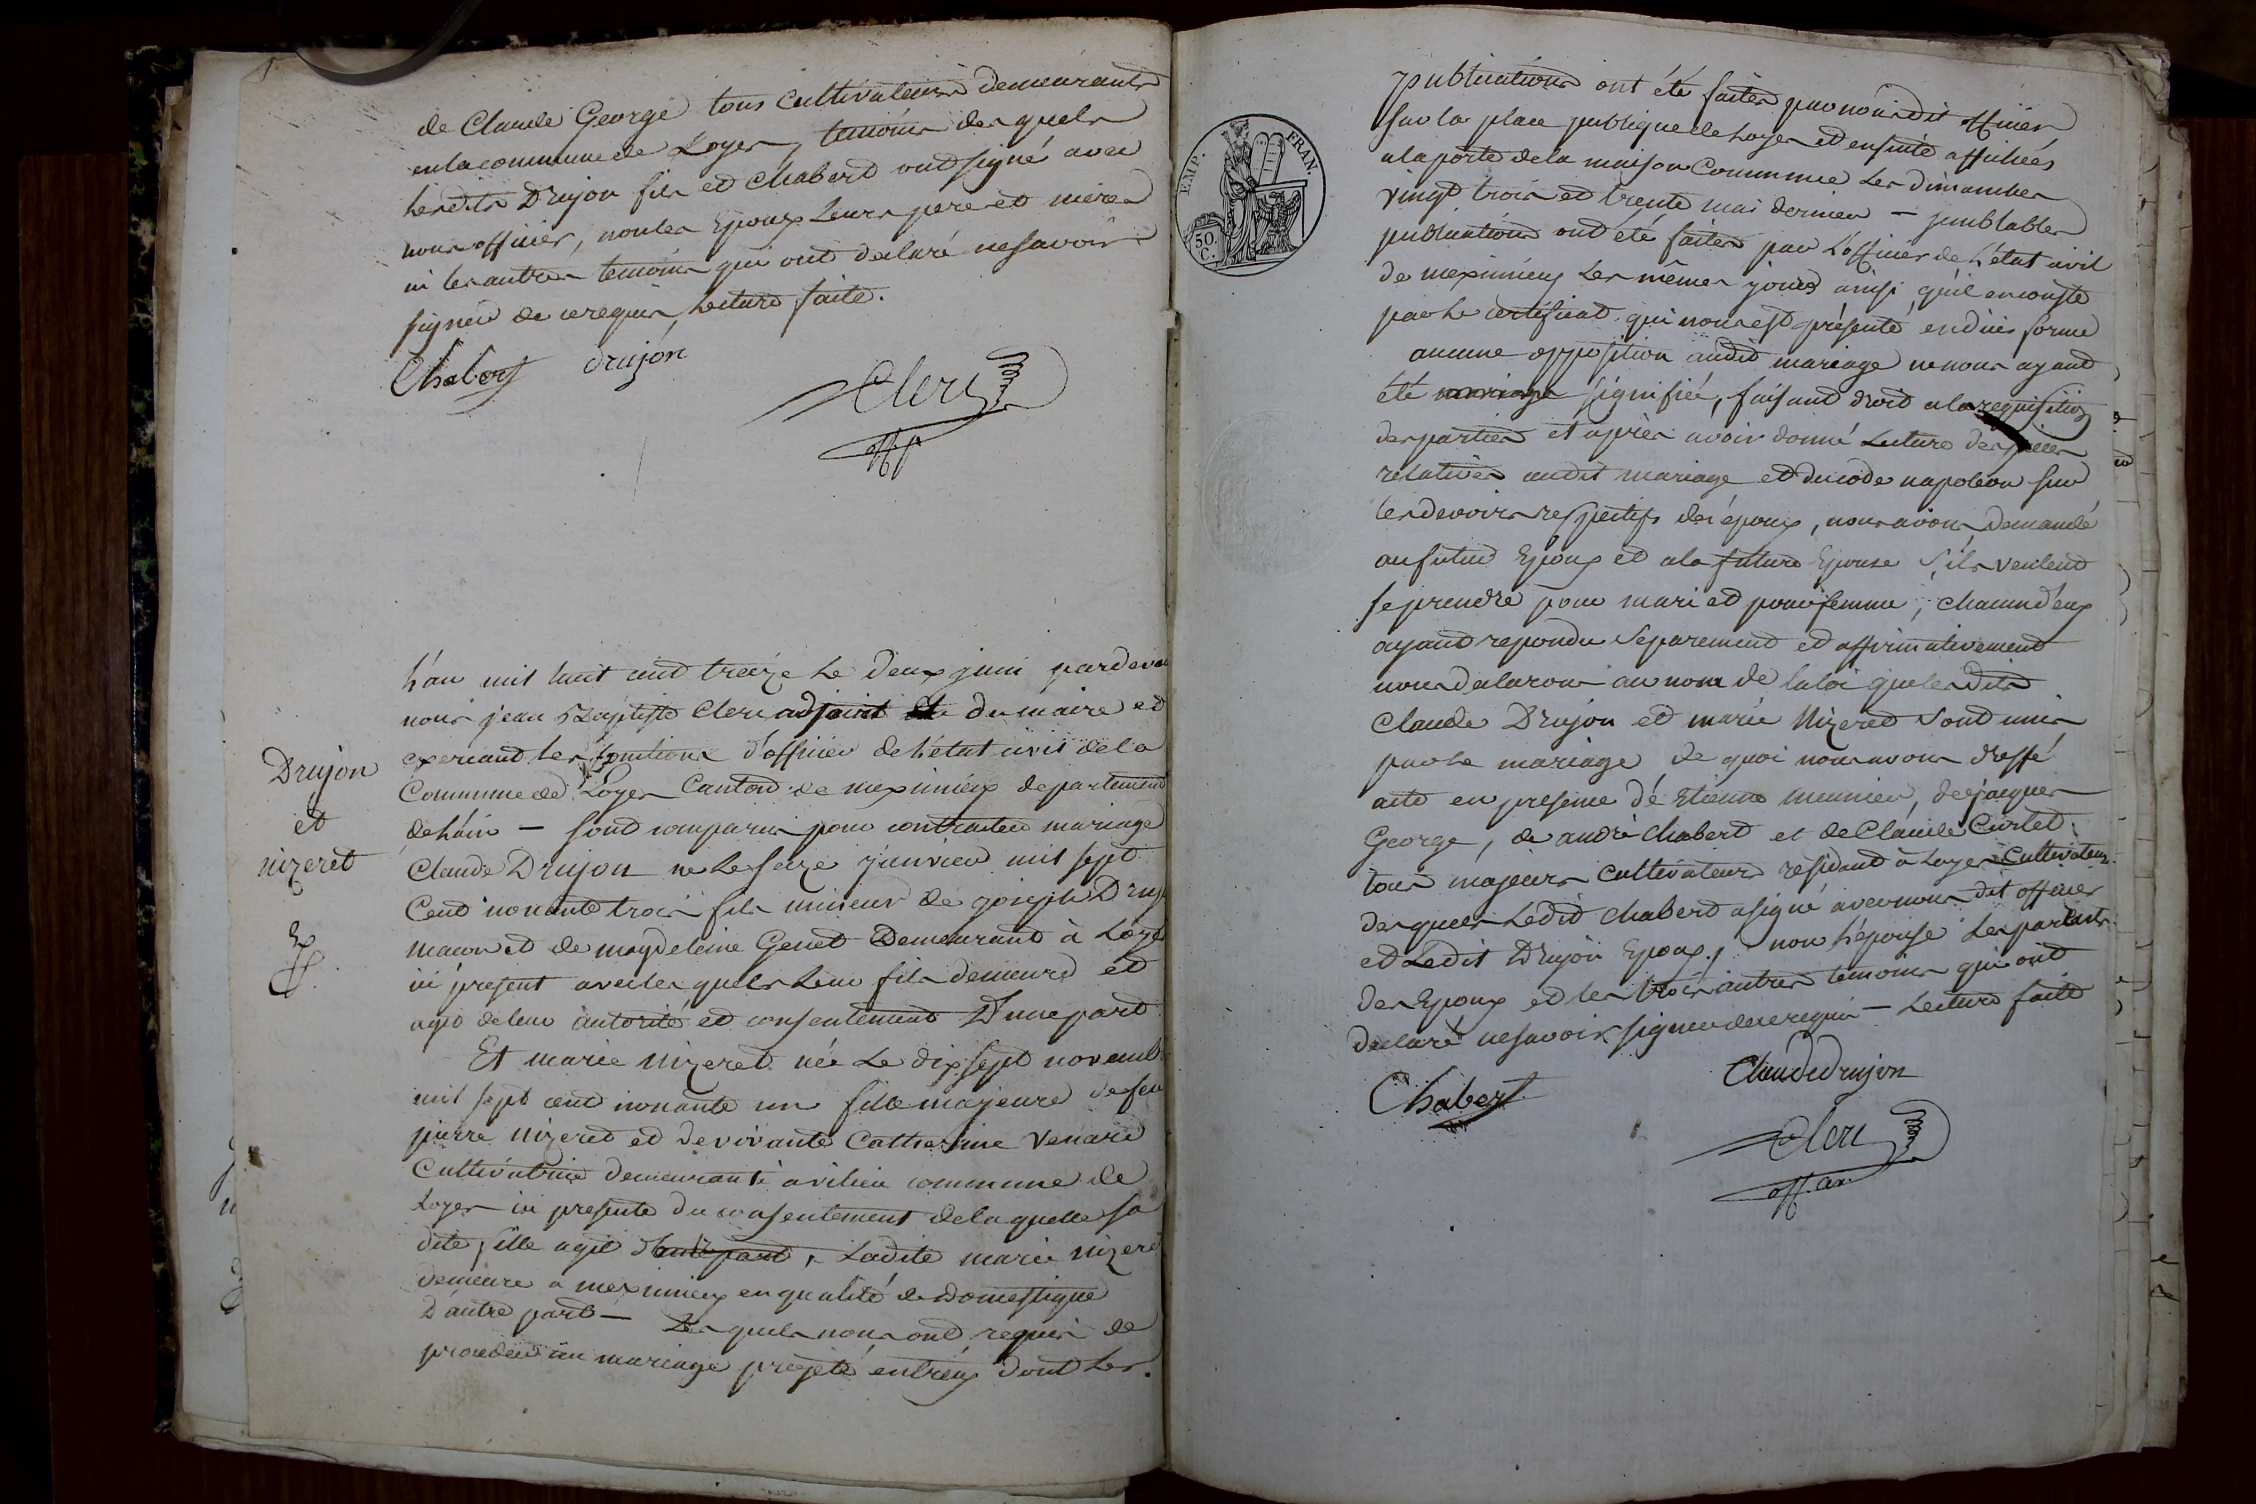 de Claude George tous cultivateurs demeurants
en la commune de Loyes, temoins des quels
lesdits Drujon fils et Chabert ont signé avec
nous officier, non les Epoux Leurs pere et mere
ni les autres temoins qui ont declaré ne savoir
signer de ce requis, Lecture faite.
Chabert drujon
Clerc
off
L'an mil huit cent treize le deux juin pardevan
nous jean Baptiste Clerc adjoint du maire et
exercant les fonctions d'officier de l'état civil de la
Commune de Loyes Canton de meximieux departement
de l'ain — sont comparus pour contracter mariage
Drujon
et
nizeret
Claude Drujon né le seize janvier mil sept
Cent nonante trois fils mineur de joseph Druj
maçon et de magdeleine Genet Demeurant à Loyes
ici présent avec les quels Leur fils demeure et
agit de leur autorité et consentement D'une part
Et marie nizeret née Le dix sept novemb
mil sept cent nonante un fille majeure de feu
pierre nizeret et de vivante Catherine Venard
Cultivatrice demeurante à vilieu commune de
Loyes ici presente du consentement de laquelle sa
dite fille agit d'autre part, Ladite marie nizeret
demeure a meximieux en qualité de Domestique
D'autre part — Les quels nous ont requis de
proceder au mariage projeté entr'eux dont Les
EMP. FRAN.
50. C.
publications ont été faites par nous dit officier
sur la place publique de Loyes et ensuite affichées
a la porte de la maison Commune Les dimanches
vingt trois et trente mai dernier — semblables
publications ont été faites par L'officier de l'état civil
de meximieux Les mêmes jours ainsi qu'il en conste
par le certificat qui nous est présenté en due forme
aucune opposition audit mariage ne nous ayant
été mariage signifiée, faisant droit a la requisition
des parties et après avoir donné Lecture des pieces
relatives audit mariage et du code napoléon sur
les devoirs respectifs des époux, nous avons demandé
au futur Epoux et a la future Epouse s'ils veulent
se prendre pour mari et pour femme, chacun d'eux
ayant repondu separement et affirmativement
nous declarons au nom de la loi que lesdits
Claude Drujon et marie Nizeret sont unis
par le mariage de quoi nous avons dressé
acte en presence de Etienne meunier, de jacques
George, de andré Chabert et de Claude Curtet
tous majeurs cultivateurs residant à Loyes Cultivateurs
des quels Ledit Chabert a signé avec nous dit officier
et Ledit Drujon Epoux, non l'épouse Les parents
des Epoux et les trois autres temoins qui ont
declaré ne savoir signer de ce requis — Lecture faite
Claude drujon
Chabert
Clerc
off.